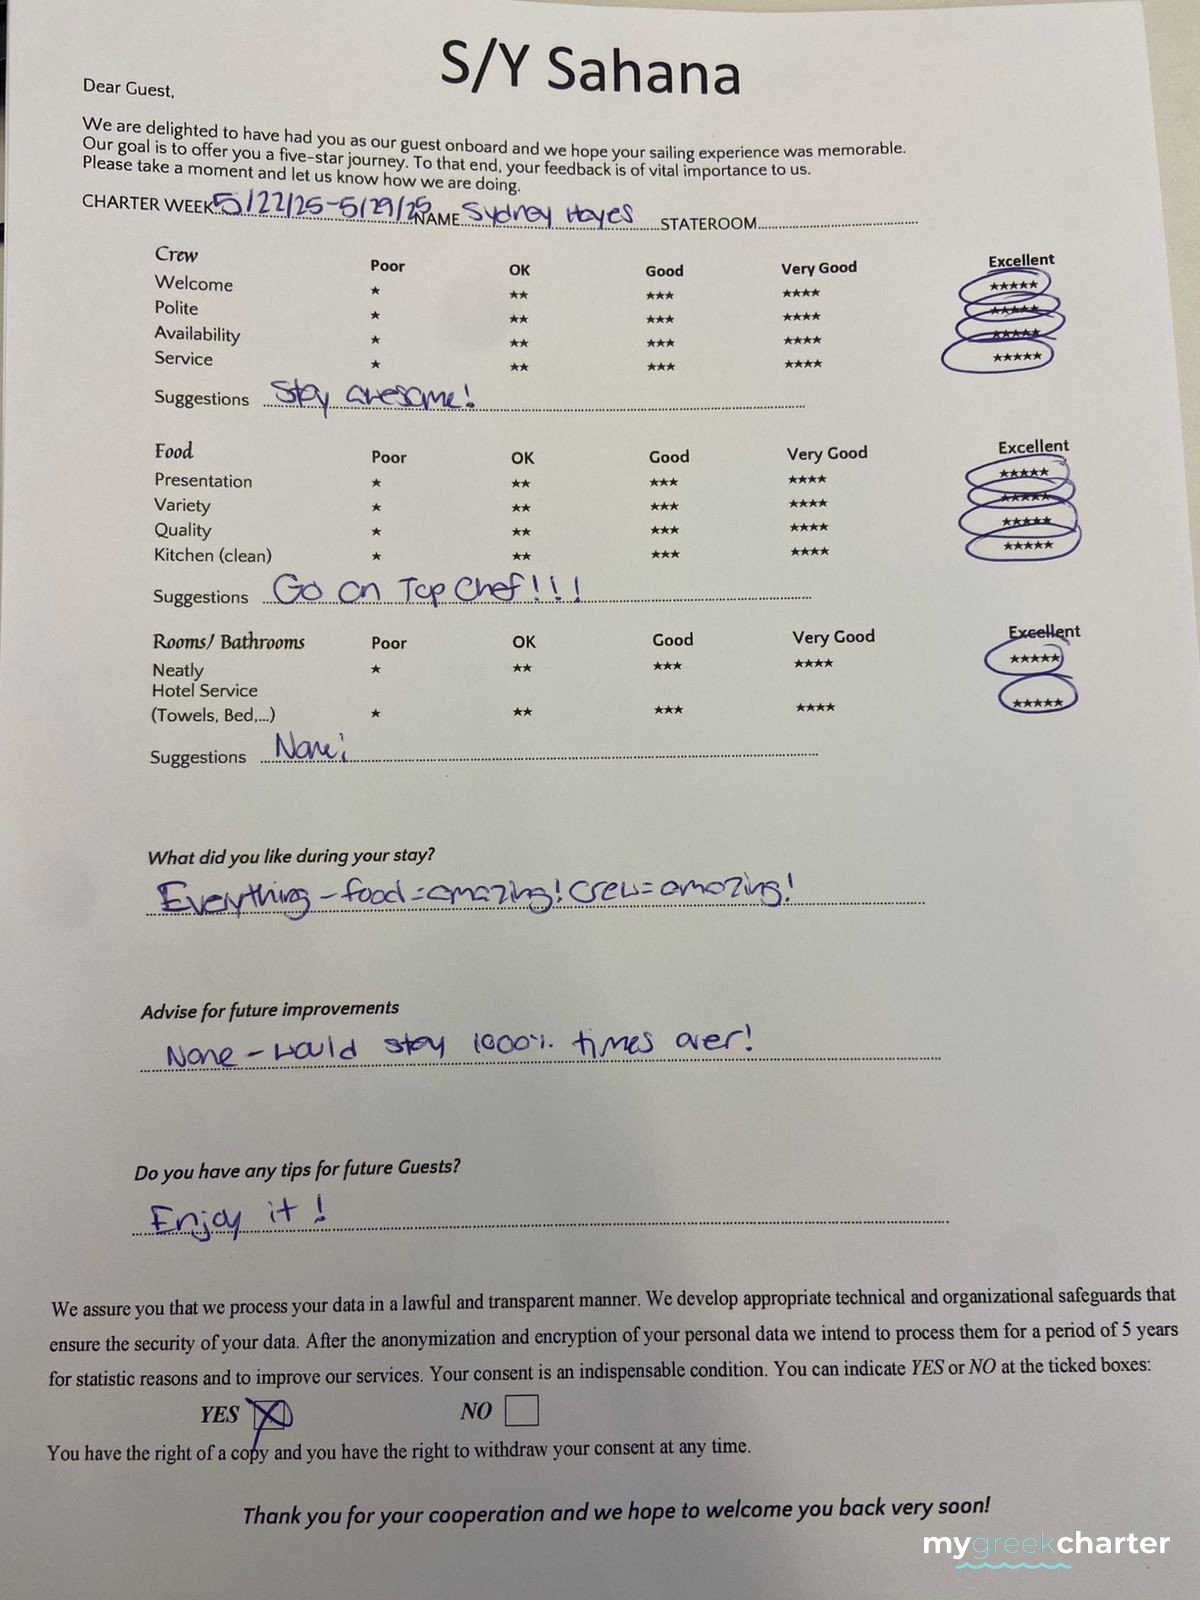 S/Y Sahana
Dear Guest,
We are delighted to have had you as our guest onboard and we hope your sailing experience was memorable.
Our goal is to offer you a five-star journey. To that end, your feedback is of vital importance to us.
Please take a moment and let us know how we are doing.
CHARTER WEEK 5/22/25-5/29/25 NAME Sydney Hayes STATEROOM
Crew Poor OK Good Very Good Excellent
Welcome ★ ★★ ★★★ ★★★★ ★★★★★
Polite ★ ★★ ★★★ ★★★★ ★★★★★
Availability ★ ★★ ★★★ ★★★★ ★★★★★
Service ★ ★★ ★★★ ★★★★ ★★★★★
Suggestions Stay awesome!
Food Poor OK Good Very Good Excellent
Presentation ★ ★★ ★★★ ★★★★ ★★★★★
Variety ★ ★★ ★★★ ★★★★ ★★★★★
Quality ★ ★★ ★★★ ★★★★ ★★★★★
Kitchen (clean) ★ ★★ ★★★ ★★★★ ★★★★★
Suggestions Go on Top Chef!!!
Rooms/ Bathrooms Poor OK Good Very Good Excellent
Neatly ★ ★★ ★★★ ★★★★ ★★★★★
Hotel Service
(Towels, Bed,...) ★ ★★ ★★★ ★★★★ ★★★★★
Suggestions None!
What did you like during your stay?
Everything - food = amazing! crew = amazing!
Advise for future improvements
None - would stay 1000% times over!
Do you have any tips for future Guests?
Enjoy it!
We assure you that we process your data in a lawful and transparent manner. We develop appropriate technical and organizational safeguards that
ensure the security of your data. After the anonymization and encryption of your personal data we intend to process them for a period of 5 years
for statistic reasons and to improve our services. Your consent is an indispensable condition. You can indicate YES or NO at the ticked boxes:
YES X NO
You have the right of a copy and you have the right to withdraw your consent at any time.
Thank you for your cooperation and we hope to welcome you back very soon!
mygreekcharter